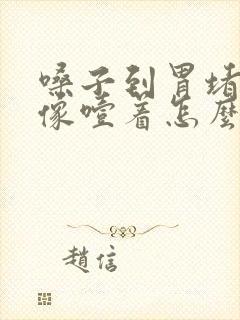 嗓子到胃堵
像噎着怎麼
趙信